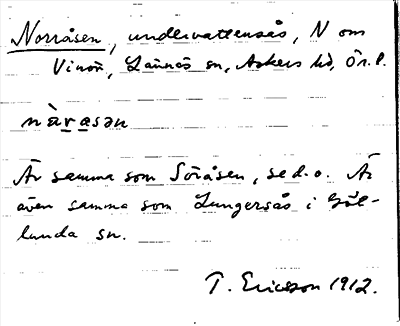 Norråsen, undervattensås, N om
Vinön, Lännäs sn, Askers hd, Ör. l.
nå̀rasən
Är samma som Söråsen, se d. o. Är
även samma som Lungersås i Göl-
lunda sn.
T. Ericsson 1912.